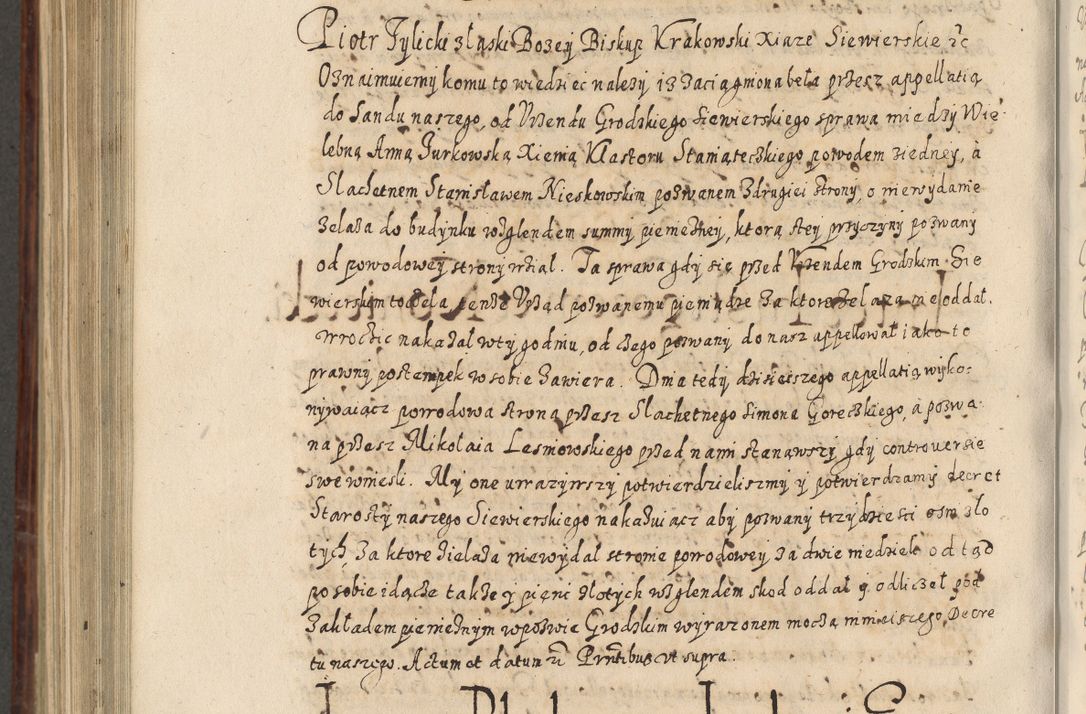 Piotr Tylicki z łaski Bozey Biskup Krakowski Xiaze Siewierskie etc
Oznaimuiemy komu to wiedziec nalezy iz zaciągniona beła przesz appellatią
do Sandu naszego, od Vrzendu Grodzkiego Siewierskiego sprawa miedzy Wie
lebną Anną Jurkowską Xienią Klastoru Staniąteczkiego powodem z iedney, a
Slachetnem Stanisławem Nieskowskim pozwanem z drugiei strony, o niewydanie
zelaza do budynku wzglendem summy pieniezney, ktorą stey przyczyny pozwany
od powodowey strony wział. Ta sprawa gdy się przed Vrzendem Grodzkim Sie
wierskim toczela, tenze Vrząd pozwanemu pieniądze za ktore zelaza nie oddał.
wrocic nakazał w tygodniu, od czego pozwany do nasz appellował iako to
prawny postempek w sobie zawiera. Dnia tedy dzisieiszego appellatią wyko:
nywaiącz powodowa strona przesz Slachetnego Simona Goreczkiego, a pozwa
na przesz Mikołaia Lesniowskiego przed nami stanąwszy, gdy controuersie
swe wniesli. My one uwazywszy potwierdzieliszmy y potwierdzamy decret
Starosty naszego Siewierskiego nakazuiącz aby pozwany trzydziesci osm zło
tych, za ktore zielaza niewydał stronie powodowey za dwie niedziele od tąd
po sobie idące takze y pięnc złotych wzglendem skod oddał y odliczeł pod
zakładem pienieznym w pozwie Grodzkim wyrazonem moczą ninieiszego Decre
tu naszego. Actum et datum etc Prntibus vt supra.